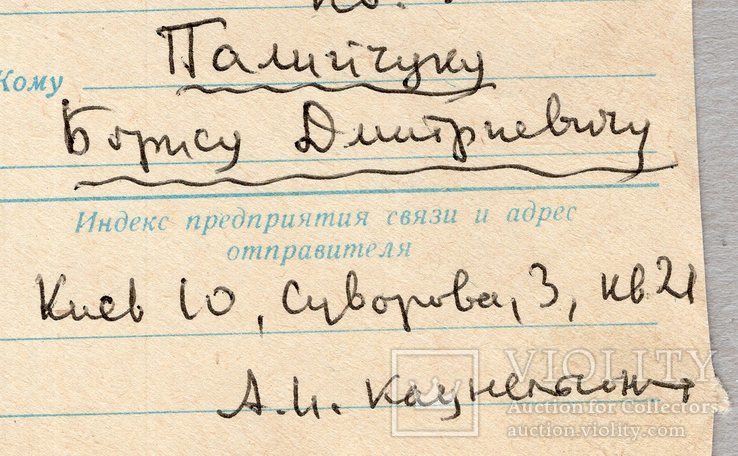 Палийчуку
Кому
Борису Дмитриевичу
Индекс предприятия связи и адрес
отправителя
Киев 10, Суворова, 3, кв 21
А.И. Кацнельсон
VIOLITY
Auction for Collectors
auction.violity.com